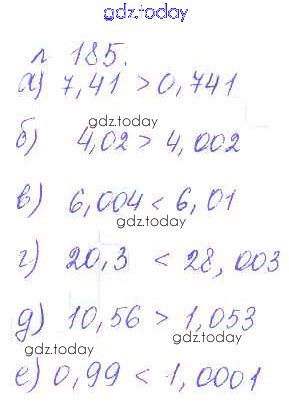 gdz.today
л 185.
а) 7,41 > 0,741
gdz.today
б) 4,02 > 4,002
в) 6,004 < 6,01
gdz.today
г) 20,3 < 28,003
gdz.today
д) 10,56 > 1,053
gdz.today
gdz.today
е) 0,99 < 1,0001